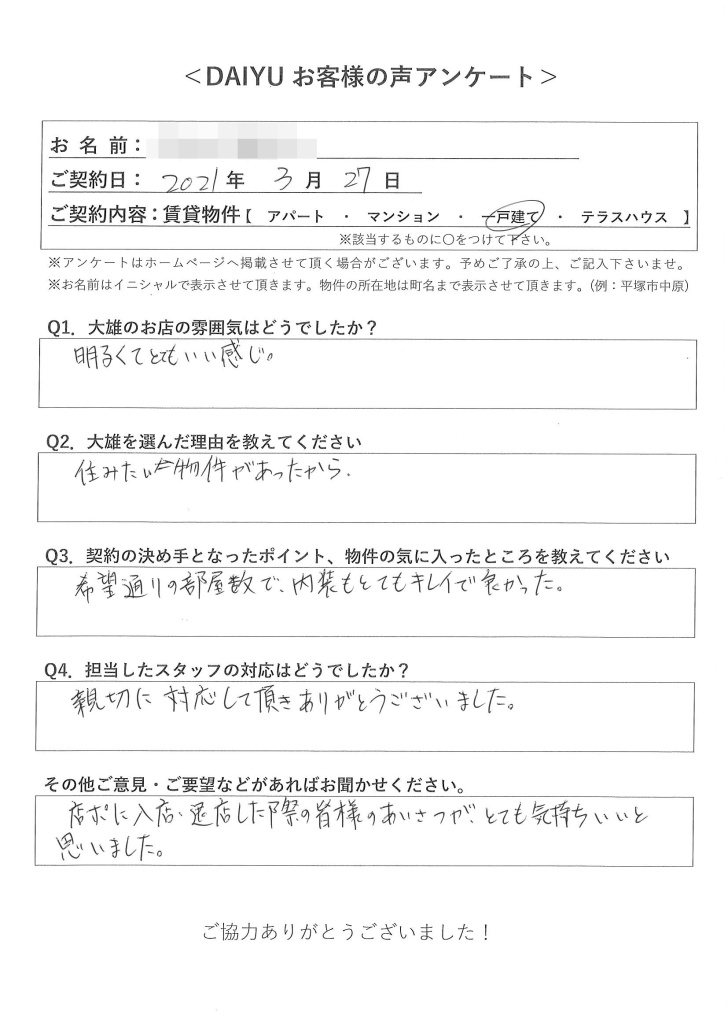 ＜DAIYU お客様の声アンケート＞
お 名 前：
ご契約日： 2021 年 3 月 27 日
ご契約内容：賃貸物件【 アパート ・ マンション ・ 一戸建て ・ テラスハウス 】
※該当するものに〇をつけて下さい。
※アンケートはホームページへ掲載させて頂く場合がございます。予めご了承の上、ご記入下さいませ。
※お名前はイニシャルで表示させて頂きます。物件の所在地は町名まで表示させて頂きます。（例：平塚市中原）
Q1．大雄のお店の雰囲気はどうでしたか？
明るくてとてもいい感じ。
Q2．大雄を選んだ理由を教えてください
住みたい物件があったから.
Q3．契約の決め手となったポイント、物件の気に入ったところを教えてください
希望通りの部屋数で、内装もとてもキレイで良かった。
Q4．担当したスタッフの対応はどうでしたか？
親切に対応して頂きありがとうございました。
その他ご意見・ご要望などがあればお聞かせください。
店ポに入店・退店した際の皆様のあいさつが、とても気持ちいいと
思いました。
ご協力ありがとうございました！